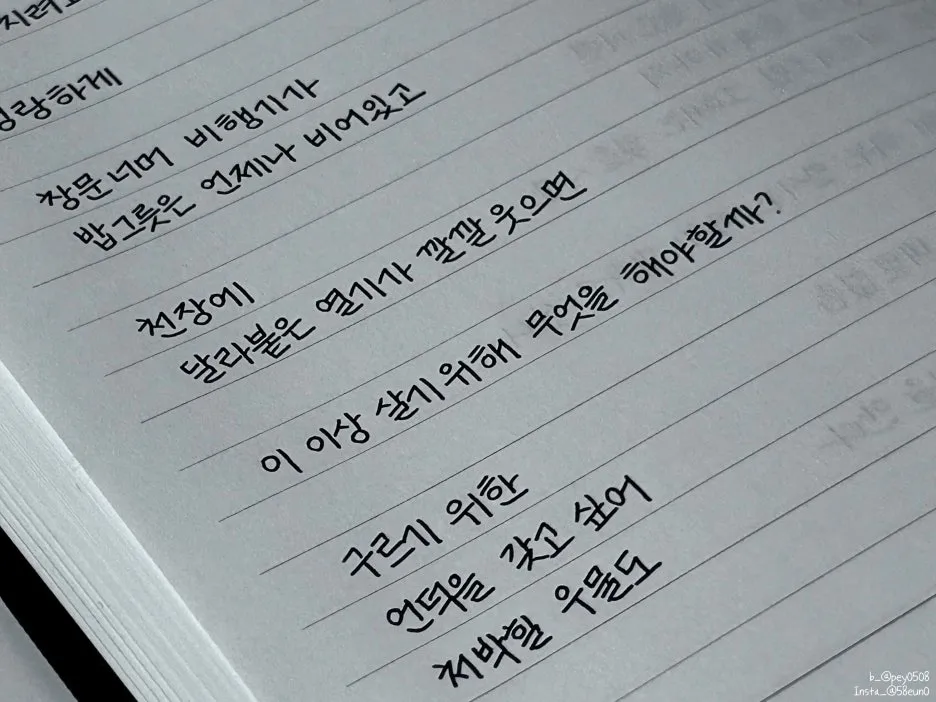 지려고
명랑하게
창문너머 비행기가
밥그릇은 언제나 비어있고
천장에
달라붙은 열기가 깔깔 웃으면
이 이상 살기 위해 무엇을 해야할까?
구르기 위한
언덕을 갖고 싶어
처박힐 우물도
b_@pey0508
Insta_@58eun0